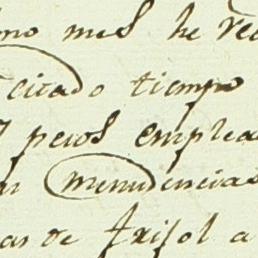 mo mes he re
citado tiempo
pesos emplea
en menudencias
as de frisol a